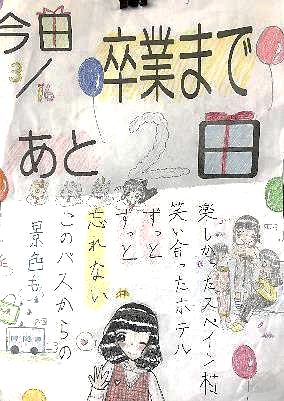 今日
3/16
卒業まで
あと2日
楽しかったスペイン村
笑い合ったホテル
ずっと
ずっと
忘れない
このバスからの
景色も